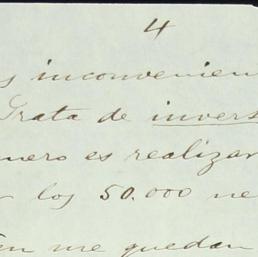 4
s inconvenien
Trata de invers
nero es realizar
los 50.000 ne
me quedan